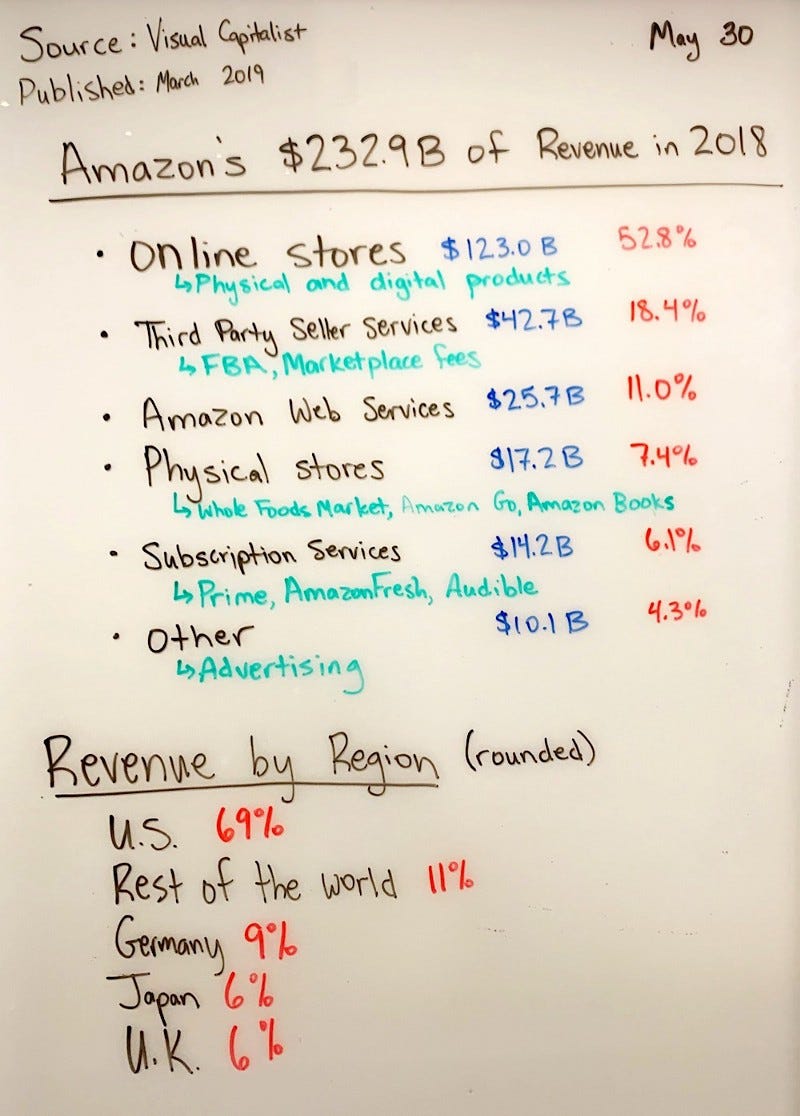 Source: Visual Capitalist
May 30
Published: March 2019
Amazon's $232.9B of Revenue in 2018
• Online stores $123.0 B 52.8%
↳Physical and digital products
• Third Party Seller Services $42.7B 18.4%
↳FBA, Marketplace fees
• Amazon Web Services $25.7B 11.0%
• Physical stores $17.2B 7.4%
↳Whole Foods Market, Amazon Go, Amazon Books
• Subscription Services $14.2B 6.1%
↳Prime, AmazonFresh, Audible
• Other $10.1 B 4.3%
↳Advertising
Revenue by Region (rounded)
U.S. 69%
Rest of the world 11%
Germany 9%
Japan 6%
U.K. 6%